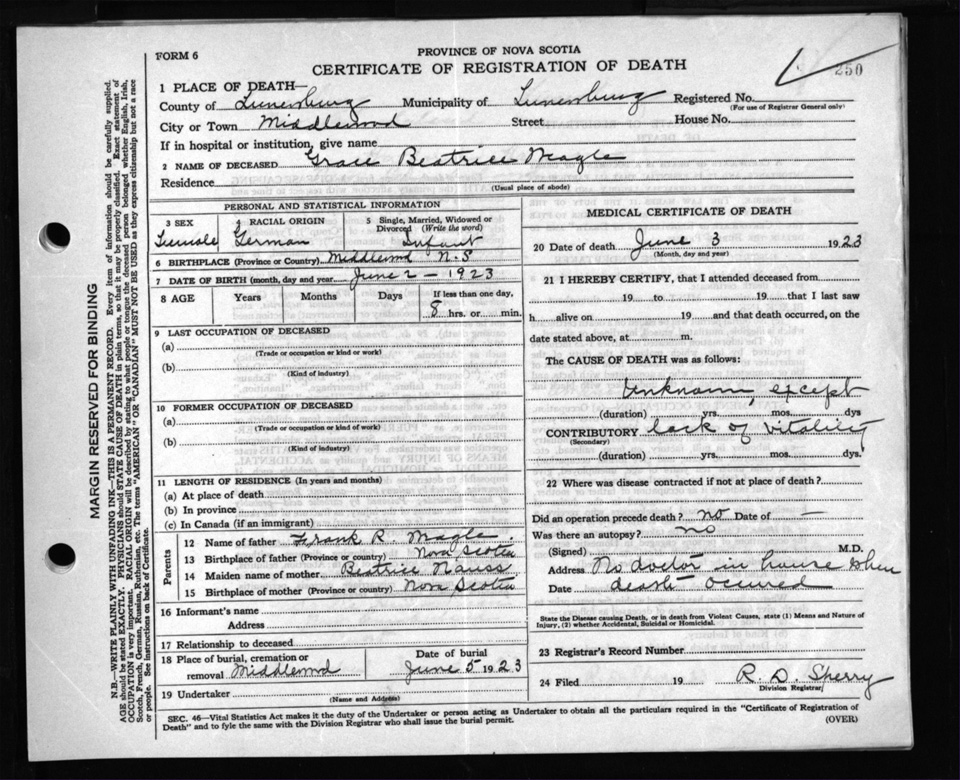 FORM 6
PROVINCE OF NOVA SCOTIA
CERTIFICATE OF REGISTRATION OF DEATH
250
1 PLACE OF DEATH—
County of Lunenburg Municipality of Lunenburg Registered No.
(For use of Registrar General only)
City or Town Middlewood Street House No.
If in hospital or institution, give name
2 NAME OF DECEASED Grace Beatrice Meagle
Residence
(Usual place of abode)
PERSONAL AND STATISTICAL INFORMATION
3 SEX 4 RACIAL ORIGIN 5 Single, Married, Widowed or
Divorced (Write the word)
Female German Infant
6 BIRTHPLACE (Province or Country) Middlewd N.S
7 DATE OF BIRTH (month, day and year) June 2 – 1923
8 AGE Years Months Days If less than one day,
8 hrs. or min.
9 LAST OCCUPATION OF DECEASED
(a)
(Trade or occupation or kind or work)
(b)
(Kind of industry)
10 FORMER OCCUPATION OF DECEASED
(a)
(Trade or occupation or kind of work)
(b)
(Kind of industry)
11 LENGTH OF RESIDENCE (In years and months)
(a) At place of death
(b) In province
(c) In Canada (if an immigrant)
Parents
12 Name of father Frank R. Magle
13 Birthplace of father (Province or country) Nova Scotia
14 Maiden name of mother Beatrice Nauss
15 Birthplace of mother (Province or country) Nova Scotia
16 Informant's name
Address
17 Relationship to deceased
18 Place of burial, cremation or
removal Middlewd
Date of burial
June 5 1923
19 Undertaker
(Name and Address)
MEDICAL CERTIFICATE OF DEATH
20 Date of death June 3 1923
(Month, day and year)
21 I HEREBY CERTIFY, that I attended deceased from
19 to 19 that I last saw
h alive on 19 and that death occurred, on the
date stated above, at m.
The CAUSE OF DEATH was as follows:
Unknown, except
(duration) yrs. mos. dys
CONTRIBUTORY lack of vitality
(Secondary)
(duration) yrs. mos. dys.
22 Where was disease contracted if not at place of death?
Did an operation precede death? no Date of —
Was there an autopsy? no
(Signed) M.D.
Address No doctor in house when
Date death occured
State the Disease causing Death, or in death from Violent Causes, state (1) Means and Nature of
Injury, (2) whether Accidental, Suicidal or Homicidal.
23 Registrar's Record Number
24 Filed 19 R. D. Sherry
Division Registrar
SEC. 46—Vital Statistics Act makes it the duty of the Undertaker or person acting as Undertaker to obtain all the particulars required in the "Certificate of Registration of
Death" and to fyle the same with the Division Registrar who shall issue the burial permit.
(OVER)
MARGIN RESERVED FOR BINDING
N.B.—WRITE PLAINLY WITH UNFADING INK—THIS IS A PERMANENT RECORD. Every item of information should be carefully supplied.
AGE should be stated EXACTLY. PHYSICIANS should STATE CAUSE OF DEATH in plain terms, so that it may be properly classified. Exact statement of
OCCUPATION is very important. RACIAL ORIGIN will be described by stating to what people or tongue the deceased person belonged whether English, Irish,
Scotch, French, German, Russian, Ruthenian, etc. The terms "AMERICAN" OR "CANADIAN" MUST NOT BE USED as they express citizenship but not a race
or people. See instructions on back of Certificate.